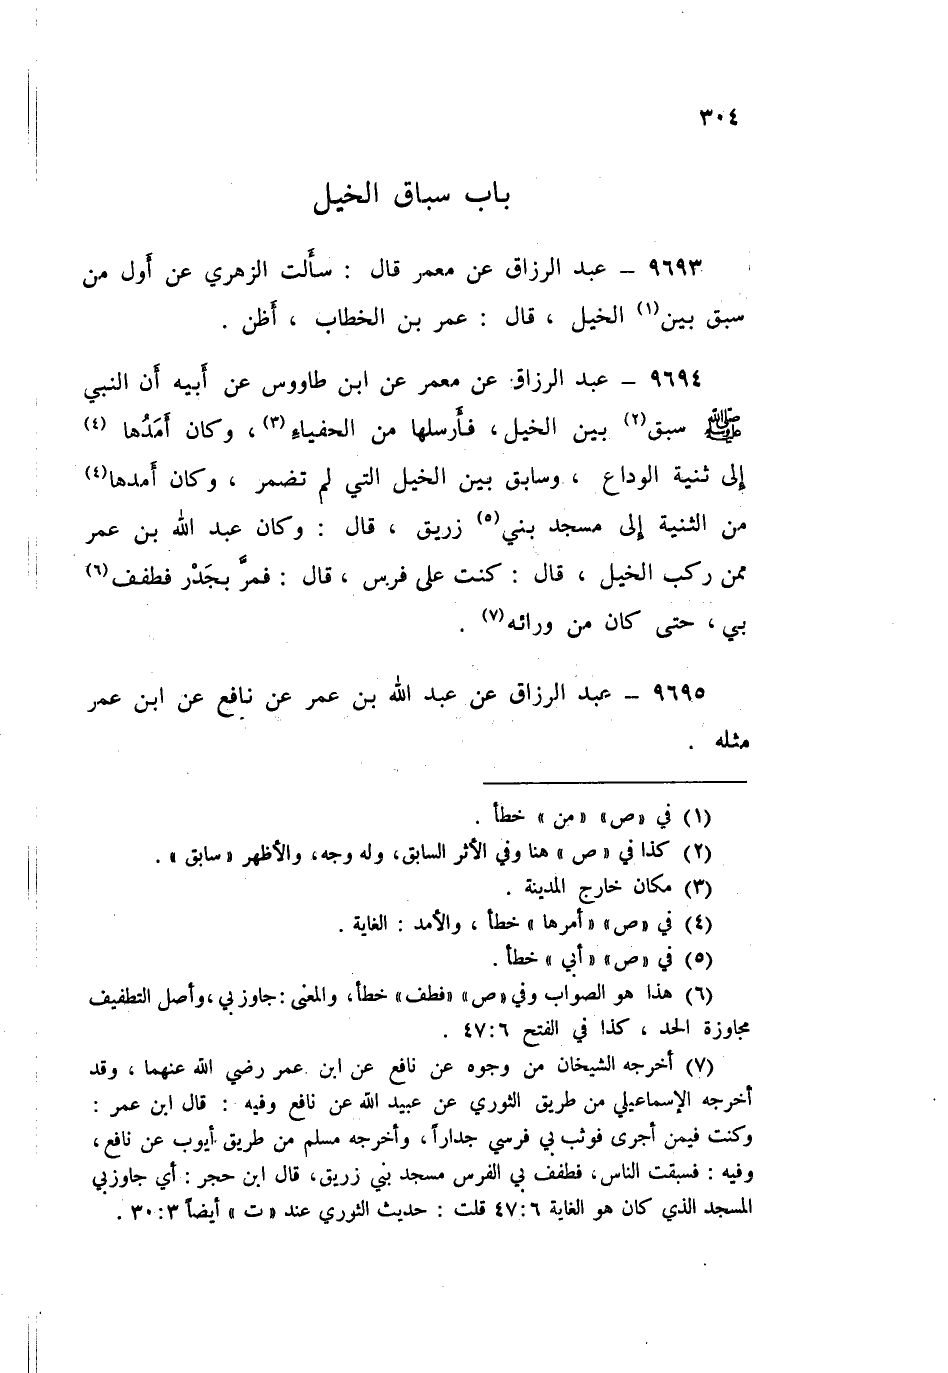 ٣٠٤
باب سباق الخيل
٩٦٩٣ – عبد الرزاق عن معمر قال : سألت الزهري عن أول من
سبق بين(١) الخيل ، قال : عمر بن الخطاب ، أظن .
٩٦٩٤ – عبد الرزاق عن معمر عن ابن طاووس عن أبيه أن النبي
ﷺ سبق(٢) بين الخيل ، فأرسلها من الحفياء(٣) ، وكان أَمَدُها (٤)
إلى ثنية الوداع ، وسابق بين الخيل التي لم تضمر ، وكان أمدها(٤)
من الثنية إلى مسجد بني(٥) زريق ، قال : وكان عبد الله بن عمر
ممن ركب الخيل ، قال : كنت على فرس ، قال : فمرَّ بجَدْر فطفف(٦)
بي ، حتى كان من ورائه(٧) .
٩٦٩٥ – عبد الرزاق عن عبد الله بن عمر عن نافع عن ابن عمر
مثله .
(١) في «ص» «من» خطأ .
(٢) كذا في «ص» هنا وفي الأثر السابق، وله وجه، والأظهر «سابق» .
(٣) مكان خارج المدينة .
(٤) في «ص» «أمرها» خطأ ، والأمد : الغاية .
(٥) في «ص» «أبي» خطأ .
(٦) هذا هو الصواب وفي «ص» «فطف» خطأ، والمعنى : جاوز بي ، وأصل التطفيف
مجاوزة الحد ، كذا في الفتح ٤٧:٦ .
(٧) أخرجه الشيخان من وجوه عن نافع عن ابن عمر رضي الله عنهما ، وقد
أخرجه الإسماعيلي من طريق الثوري عن عبيد الله عن نافع وفيه : قال ابن عمر :
وكنت فيمن أجرى فوثب بي فرسي جداراً ، وأخرجه مسلم من طريق أيوب عن نافع ،
وفيه : فسبقت الناس ، فطفف بي الفرس مسجد بني زريق، قال ابن حجر : أي جاوز بي
المسجد الذي كان هو الغاية ٤٧:٦ قلت : حديث الثوري عند «ت» أيضاً ٣٠:٣ .